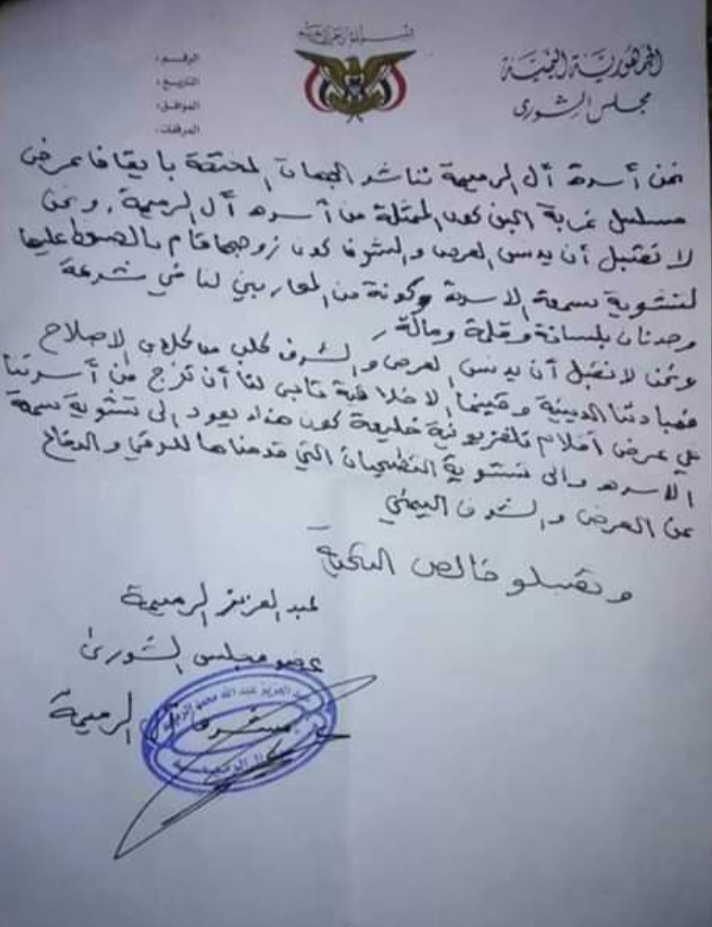 بسم الله الرحمن الرحيم
الجمهورية اليمنية
مجلس الشورى
الرقم:
التاريخ:
الموافق:
المرفقات:
نحن أسرة آل الرميمة نناشد الجهات المختصة بايقاف عرض
مسلسل غربة البن كون الممثلة من أسره آل الرميمة. ونحن
لا نقبل أن يدنس العرض والشرف كون زوجها قام بالضغط عليها
لتشوية بسمعة الاسرة وكونة من المحاربين لنا في شرعة
وعدنان بلسانة وقلمة ومالة
ونحن لا نقبل أن يدنس العرض والشرف من الاصلاح
فمبادئنا الدينية وقيمنا الاخلاقية تأبى لنا أن تزج من أسرتنا
في عرض أفلام تلفزيونية خليعة كون هذا يعود الى تشوية سمعة
الاسره والى تشوية التضحيات التي قدمناها للدفاع
عن العرض والشرف اليمني
وتقبلو خالص التحية
عبد العزيز الرميمة
عضو مجلس الشورى
آل الرميمة